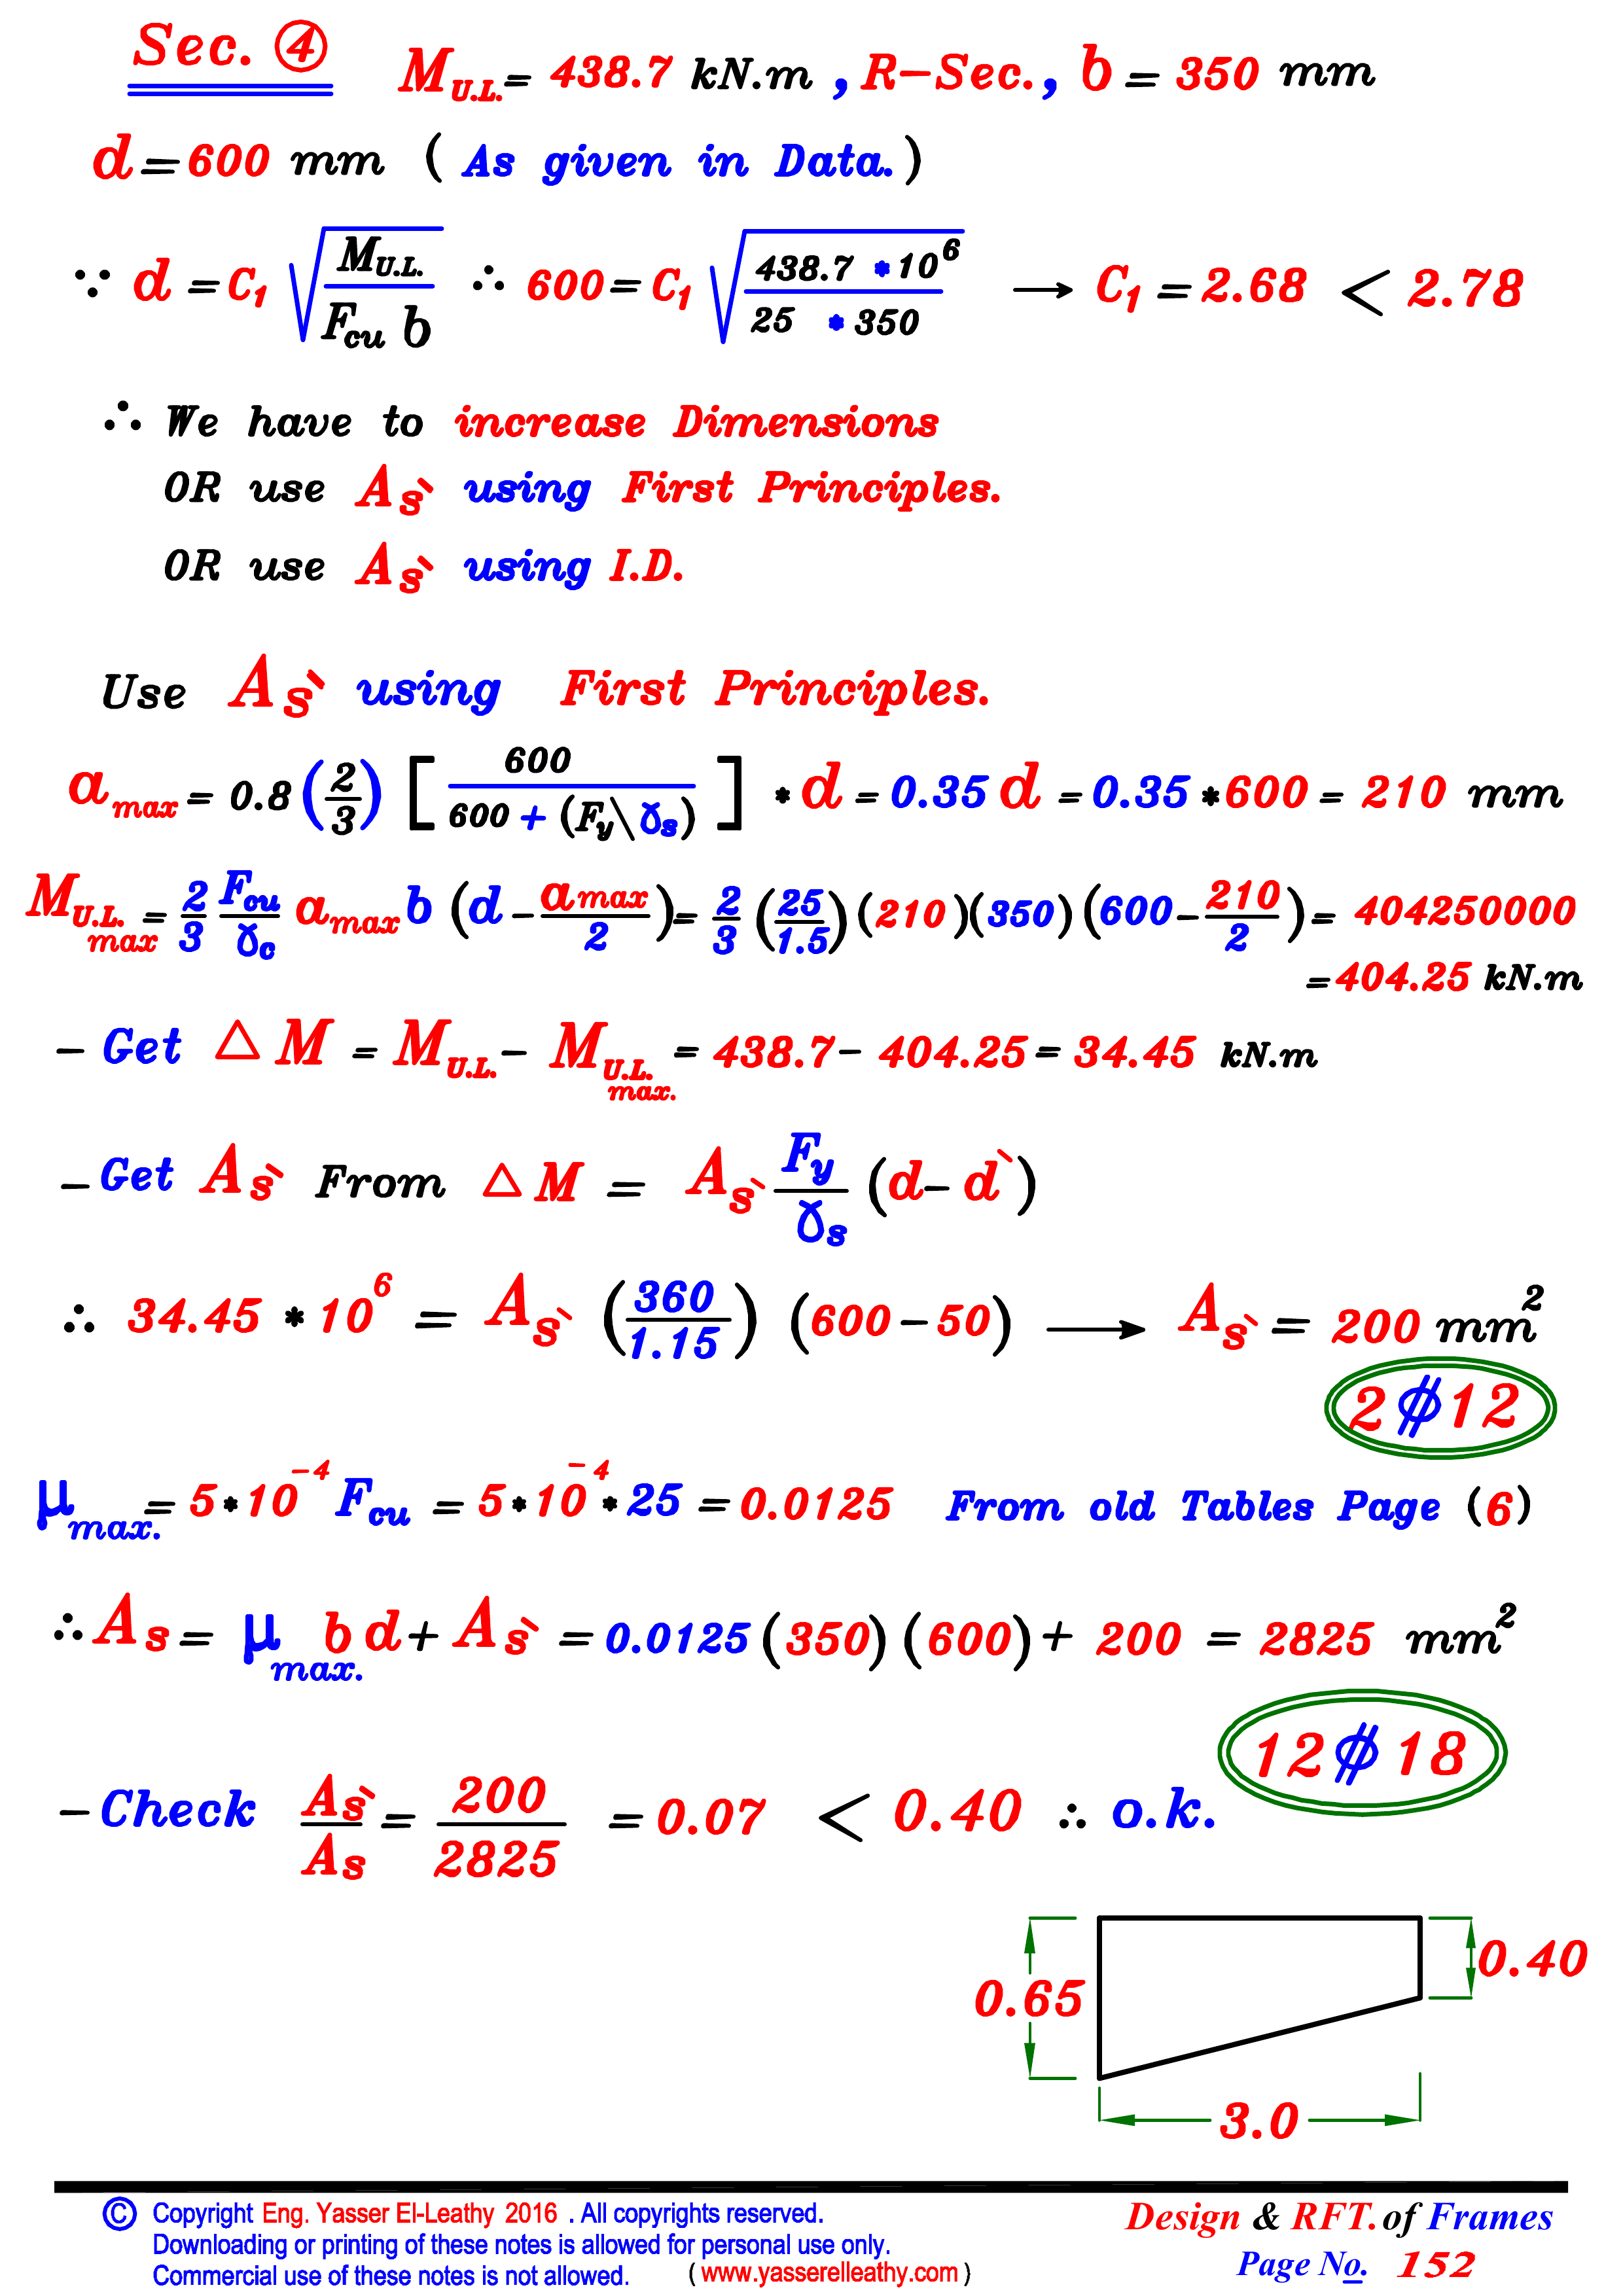 Sec. ④ M U.L. = 438.7 kN.m , R-Sec. , b = 350 mm
d = 600 mm ( As given in Data. )
∵ d = C1 √(M U.L. / Fcu b) ∴ 600 = C1 √(438.7 * 10^6 / 25 * 350) → C1 = 2.68 < 2.78
∴ We have to increase Dimensions
OR use As` using First Principles.
OR use As` using I.D.
Use As` using First Principles.
a max = 0.8 (2/3) [ 600 / 600 + (Fy\γs) ] * d = 0.35 d = 0.35 * 600 = 210 mm
M U.L. max = 2/3 Fcu/γc a max b (d - a max/2) = 2/3 (25/1.5) (210) (350) (600 - 210/2) = 404250000
= 404.25 kN.m
- Get △M = M U.L. - M U.L. max. = 438.7 - 404.25 = 34.45 kN.m
- Get As` From △M = As` Fy/γs (d - d`)
∴ 34.45 * 10^6 = As` (360/1.15) (600 - 50) → As` = 200 mm²
2 ⌀ 12
μ max. = 5 * 10^-4 Fcu = 5 * 10^-4 * 25 = 0.0125 From old Tables Page (6)
∴ As = μ max. b d + As` = 0.0125 (350) (600) + 200 = 2825 mm²
12 ⌀ 18
- Check As`/As = 200/2825 = 0.07 < 0.40 ∴ o.k.
0.65
0.40
3.0
© Copyright Eng. Yasser El-Leathy 2016 . All copyrights reserved.
Downloading or printing of these notes is allowed for personal use only.
Commercial use of these notes is not allowed. ( www.yasserelleathy.com )
Design & RFT. of Frames
Page No. 152